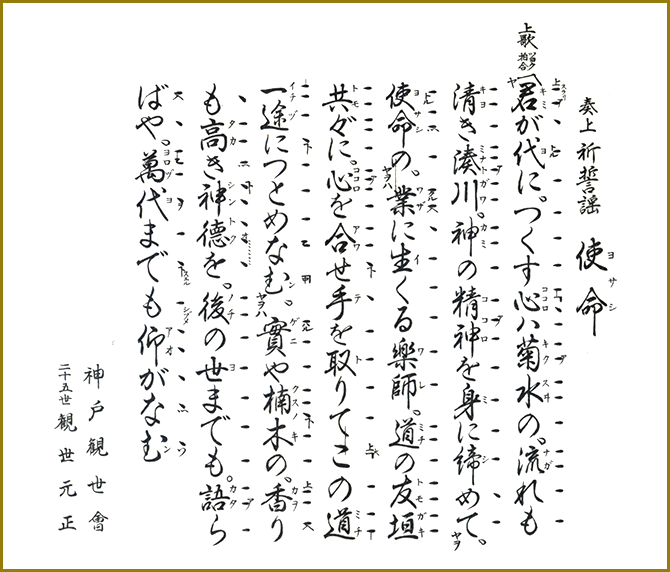 奏上 祈誓謡 使命
君が代に。つくす心ハ菊水の。流れも
清き湊川。神の精神を身に締めて。
使命の。業に生くる樂師。道の友垣
共々に。心を合せ手を取りてこの道
一途につとめなむ。實や楠木の。香り
も高き神德を。後の世までも。語ら
ばや。萬代までも仰がなむ
神戸観世會
二十五世 観世元正